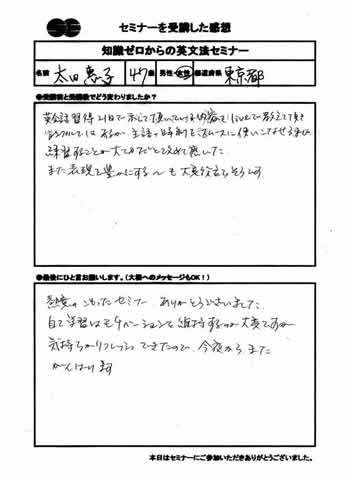 セミナーを受講した感想
知識ゼロからの英文法セミナー
名前 太田恵子 47歳 男性・女性 都道府県 東京都
●受講前と受講後でどう変わりましたか?
英会話習得21日で
シンプルではあるが、主語や時制をスムーズに使いこなせる
練習することが大切だと改めて感じた。
また表現を豊かにする
●最後にひと言お願いします。(大橋へのメッセージもOK!)
熱意のこもったセミナー ありがとうございました。
自宅学習はモチベーションを維持するのが大変ですが
気持ちがリフレッシュできたので、今夜から また
がんばります
本日はセミナーにご参加いただきありがとうございました。